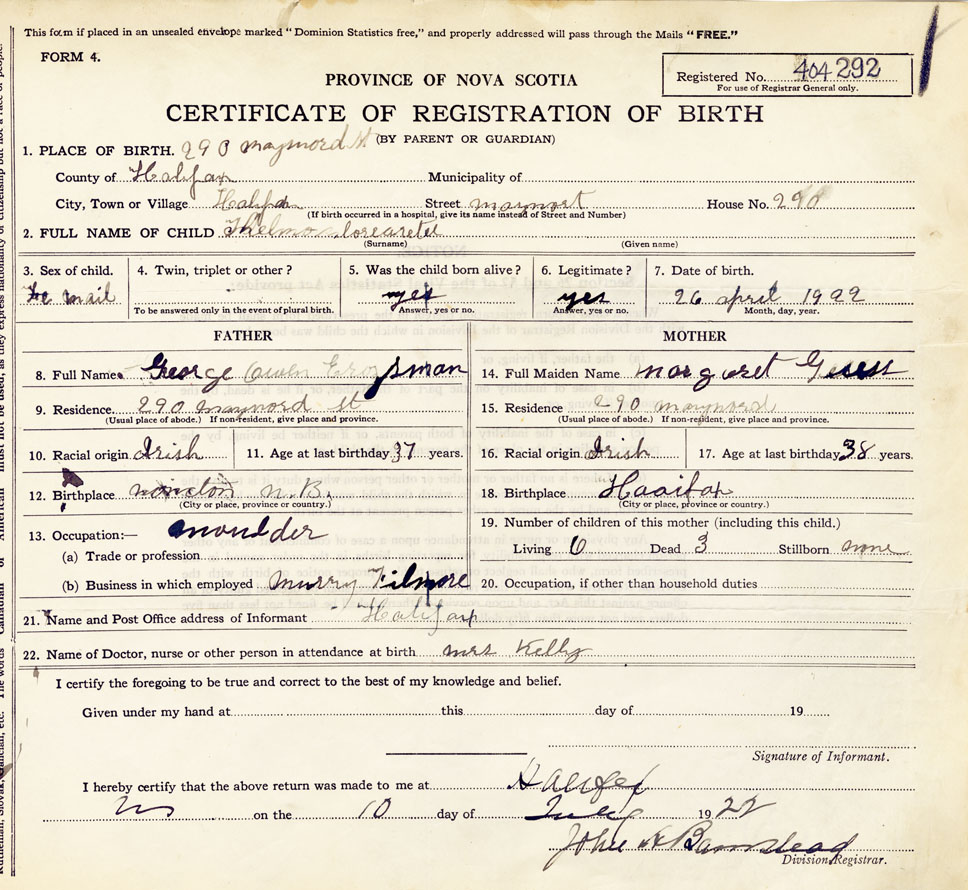 This form if placed in an unsealed envelope marked "Dominion Statistics free," and properly addressed will pass through the Mails "FREE."
FORM 4.
PROVINCE OF NOVA SCOTIA
Registered No. 404292
For use of Registrar General only.
CERTIFICATE OF REGISTRATION OF BIRTH
(BY PARENT OR GUARDIAN)
1. PLACE OF BIRTH. 290 maynord St
County of Halifax Municipality of
City, Town or Village Halifax Street maynort House No. 290
(If birth occurred in a hospital, give its name instead of Street and Number)
2. FULL NAME OF CHILD Thelma
(Surname) (Given name)
3. Sex of child. 4. Twin, triplet or other? 5. Was the child born alive? 6. Legitimate? 7. Date of birth.
fe mail yes yes 26 april 1922
To be answered only in the event of plural birth. Answer, yes or no. Answer, yes or no. Month, day, year.
FATHER MOTHER
8. Full Name George Owen 14. Full Maiden Name margaret
9. Residence. 290 maynord st 15. Residence 290 maynord
(Usual place of abode.) If non-resident, give place and province. (Usual place of abode.) If non-resident, give place and province.
10. Racial origin Irish 11. Age at last birthday 37 years. 16. Racial origin Irish 17. Age at last birthday 38 years.
12. Birthplace moncton N.B. 18. Birthplace Haaifax
(City or place, province or country.) (City or place, province or country.)
13. Occupation:— moulder 19. Number of children of this mother (including this child.)
(a) Trade or profession Living 6 Dead 3 Stillborn none
(b) Business in which employed murry Filmore 20. Occupation, if other than household duties
21. Name and Post Office address of Informant Halifax
22. Name of Doctor, nurse or other person in attendance at birth mrs Kelly
I certify the foregoing to be true and correct to the best of my knowledge and belief.
Given under my hand at this day of 19
Signature of Informant.
I hereby certify that the above return was made to me at Halifax
on the 10 day of July 1922
John A Barnstead
Division Registrar.